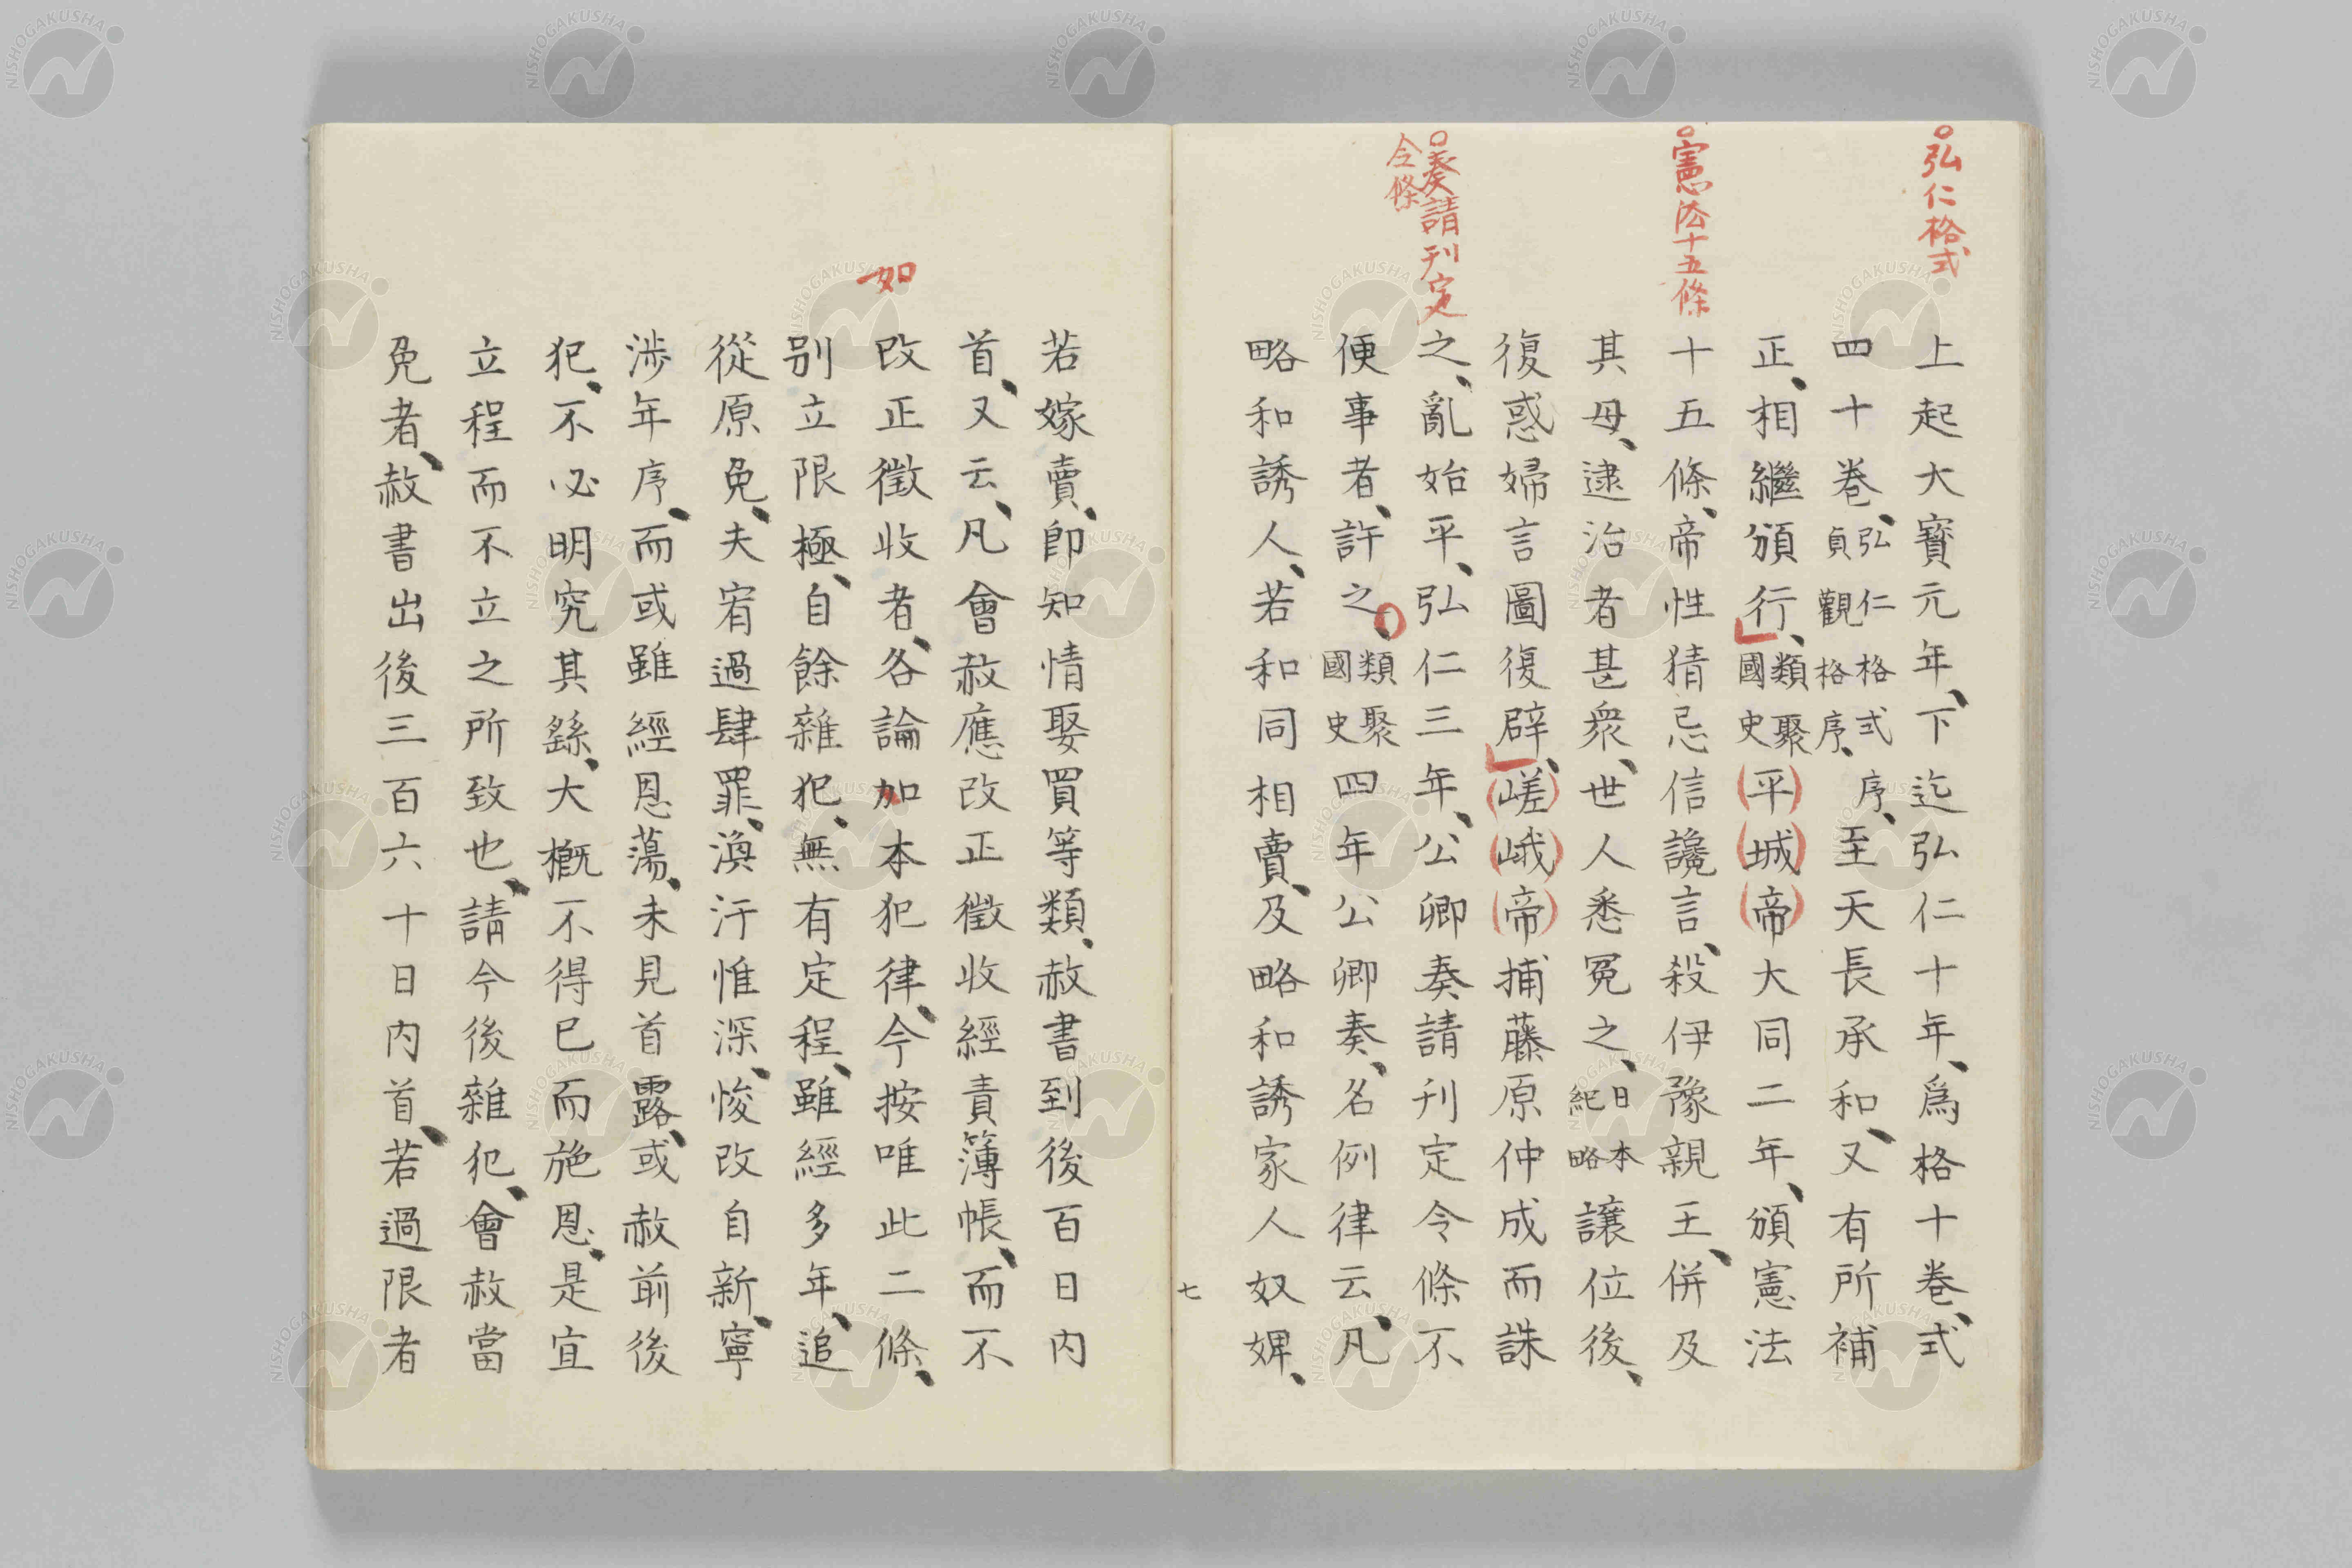 〇弘仁格式
〇憲法十五條
〇奏請刊定
令條
上起大寶元年、下迄弘仁十年、爲格十卷、式
四十卷、弘仁格式序、貞觀格序、至天長承和、又有所補
正、相繼頒行、類聚國史(平)(城)(帝)大同二年、頒憲法
十五條、帝性猜忌信讒言、殺伊豫親王、併及
其母、逮治者甚衆、世人悉冤之、日本紀略讓位後、
復惑婦言圖復辟、(嵯)(峨)(帝)捕藤原仲成而誅
之、亂始平、弘仁三年、公卿奏請刊定令條不
便事者、許之、類聚國史四年公卿奏、名例律云、凡
略和誘人、若和同相賣、及略和誘家人奴婢、
七
如
若嫁賣、卽知情娶買等類、赦書到後百日內
首、又云、凡會赦應改正徵收經責簿帳、而不
改正徵收者、各論加本犯律、今按唯此二條、
別立限極、自餘雜犯、無有定程、雖經多年、追
從原免、夫宥過肆罪、渙汗惟深、悛改自新、寧
涉年序、而或雖經恩蕩、未見首露、或赦前後
犯、不必明究其繇、大槪不得已而施恩、是宜
立程而不立之所致也、請今後雜犯、會赦當
免者、赦書出後三百六十日內首、若過限者
NISHOGAKUSHA